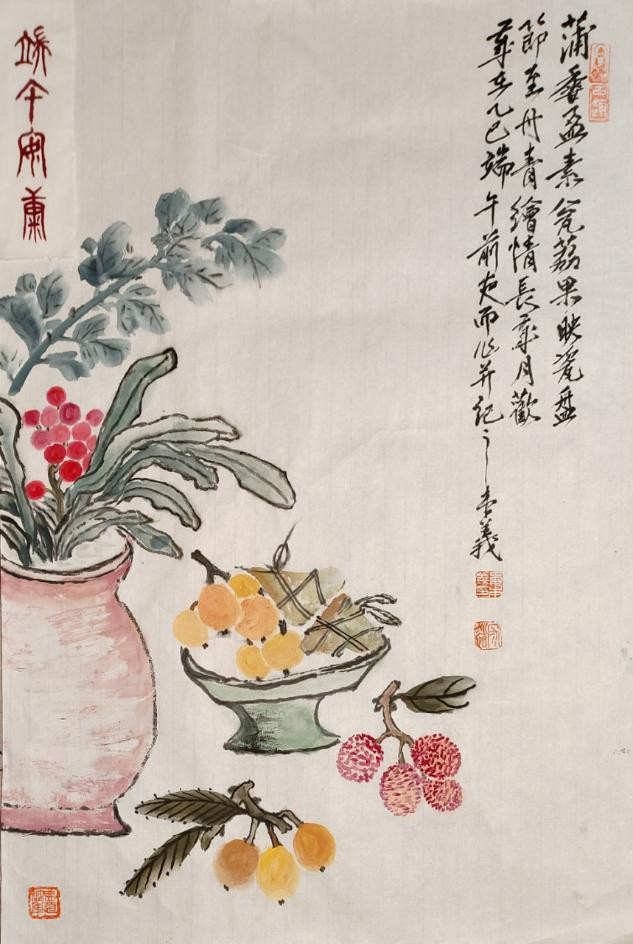 端午安康
蒲香盈素瓮荔果映瓷盘
節至丹青繪情長歲月歡
歲在乙巳端午前夜而作并記之 義